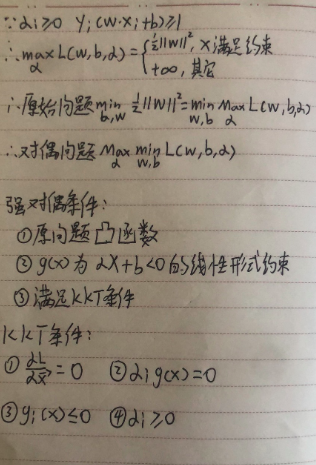 ∵ αi≥0 yi(w·xi+b)≥1
∴ max_α L(w,b,α) = { ½||w||², x满足约束
+∞, 其它
∴ 原始问题 min_{b,w} ½||w||² = min_{w,b} max_α L(w,b,α)
∴ 对偶问题 max_α min_{w,b} L(w,b,α)
强对偶条件:
① 原问题凸函数
② g(x)为 αx+b<0的线性形式约束
③ 满足KKT条件
KKT条件:
① ∂L/∂x = 0 ② αi g(x)=0
③ gi(x)≤0 ④ αi≥0